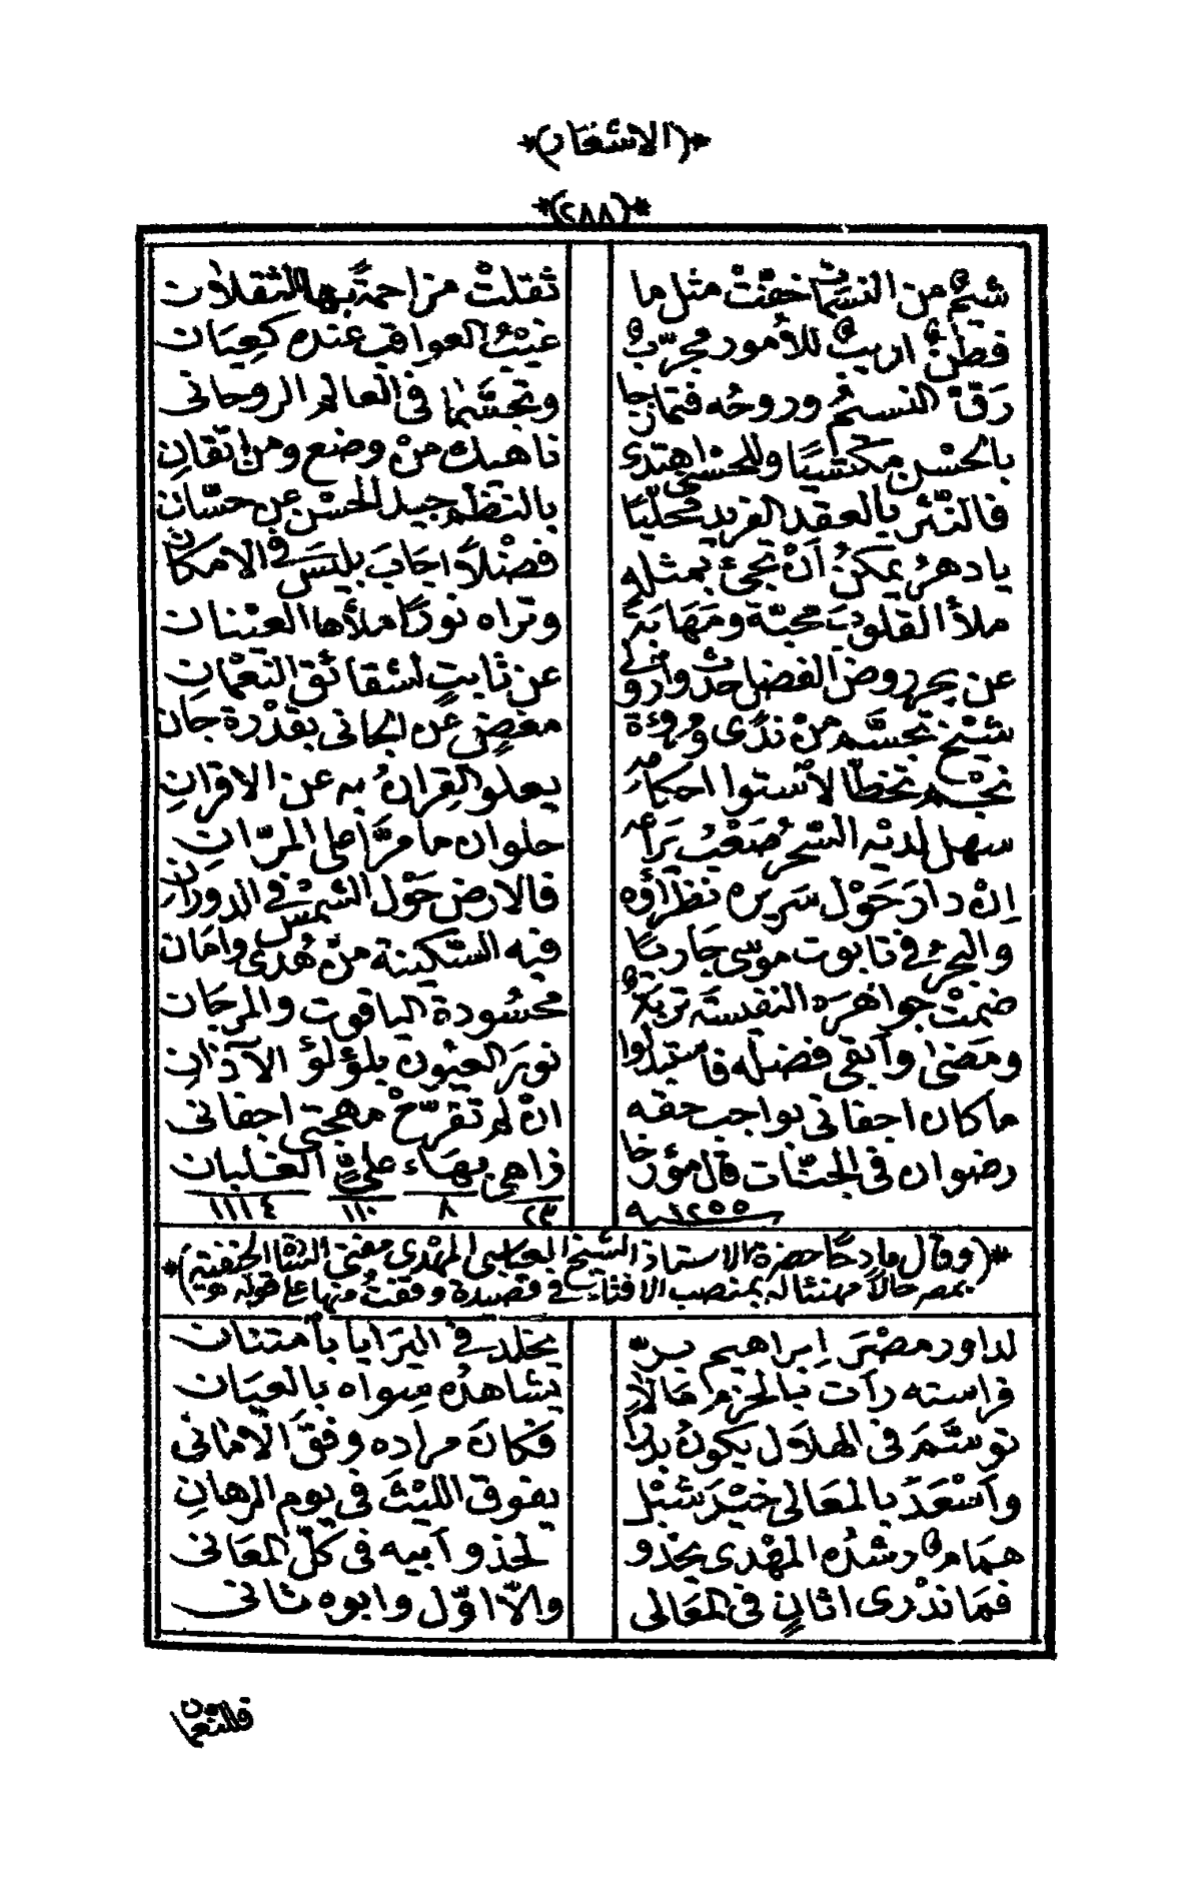 *(الاشعار)*
*(٢٨٨)*
شيمٌ من النسمات خفّتْ مثل ما ثقلتْ مزاحمةً بها الثقلان
فطنٌ اريبٌ للأمور مجرّبٌ غيبُ العواقب عنده كعيان
رَقّ النسيمُ وروحُه فتمازجا وتجسّما فى العالم الروحانى
بالحُسْن مكتسيًا وللحسنى اهتدى ناهيك منْ وضع ومن اتقانِ
فالنّثر بالعقد الفريد محليًّا بالنظم جيد الحسْن عن حسّان
يا دهرُ يمكنُ أنْ تجئ بمثله فضْلاً اجابَ بليسَ فى الامكان
ملأ القلوبَ محبّة ومَهَابَةً وتراه نورًا ملأها العيْنان
عن بحر روض الفضل حدّثْ وارْوِ لى عن ثابتٍ لشقائق النّعمانِ
شيْخ تجسّم منْ ندًى ومُروءة مغضٍ عن الجانى بقدْرة جان
نجْم تخطّا لاستوا احكامه يعلو القِرانُ به عن الاقرانِ
سهل لديْه السّحرُ صَعْبُ يَراعه حلوان ما مرَّا على المرّانِ
اِنْ دارَ حَوْل سَريره نظراؤه فالارض حَوْل الشمْس فى الدورانِ
والبحرُ فى تابوت موسى جاريًا فيه السّكينة منْ هُدى وامَان
ضمتْ جواهرَه النفيسَة تربَةٌ محسُودة الياقوت والمرجَان
ومَضىٰ وأبقى فضلَه فاستبدلوا نورَ العيُون بلؤلؤ الآذان
ما كان اجفانى بواجب حقه انْ لم تقرّحْ مهجتى اجفانى
رضوان فى الجنّات قال مؤرخا زاهى بهَاء علىٍّ الغليان
١٢٥٥ ٢٣ ٨ ١١٠ ١١١٤
*(وقال مادحًا حضرة الاستاذ الشيخ العباسى المهْدى مفتى السّادة الحنفية
بمصر حالاً مهنئا له بمنصب الافتاء فى قصيدة وقفتُ منها على قوله)*
لداور مصْرَ إبراهيم سرّ يخلد فى البَرَايا بامتنان
فراسته رأت بالحزم مَالَا يشاهدُه سِواه بالعيَان
توسَّمَ فى الهلال يكونُ بدرًا فكانَ مراده وفقَ الأمانى
وأسْعَدَ بالمعَالى خيْرَ شبْل يفوق الليْثَ فى يوم الرهانِ
همَام رشدُه المهْدى يحْذو لحذو أبيه فى كلّ المعَانى
فمَا ندْرى اثانٍ فى المعَالى والاّ اوّل وابوه ثانى
فللنّعمان